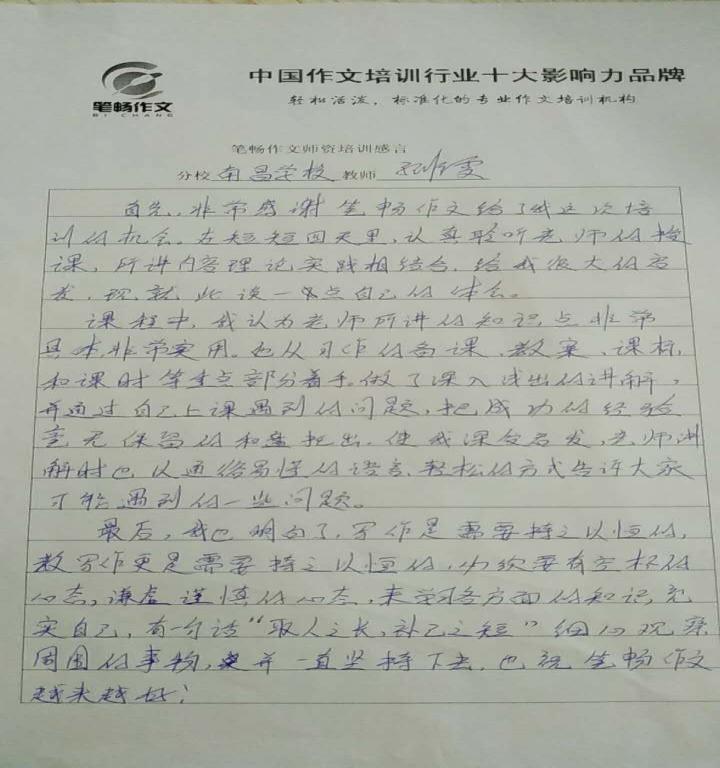 中国作文培训行业十大影响力品牌
笔畅作文
BI CHANG
轻松活泼,标准化的专业作文培训机构
笔畅作文师资培训感言
分校 南昌学校 教师
首先,非常感谢笔畅作文给了我这次培
训的机会。在短短四天里,认真聆听老师的授
课,所讲内容理论实践相结合,给我很大的启
发,现就此谈一点自己的体会。
课程中,我认为老师所讲的知识点非常
具体非常实用。他从习作的备课、教案、课标,
和课时等重点部分着手,做了深入浅出的讲解,
并通过自己上课遇到的问题,把成功的经验
毫无保留的和盘托出,使我深受启发,老师讲
解时也以通俗易懂的语言、轻松的方式告诉大家
可能遇到的一些问题。
最后,我也明白了,写作是需要持之以恒的,
教写作更是需要持之以恒的,必须要有空杯的
心态,谦虚谨慎的心态,来学习各方面的知识充
实自己,有一句话“取人之长,补己之短”细心观察
周围的事物,并一直坚持下去,也祝笔畅作文
越来越好!